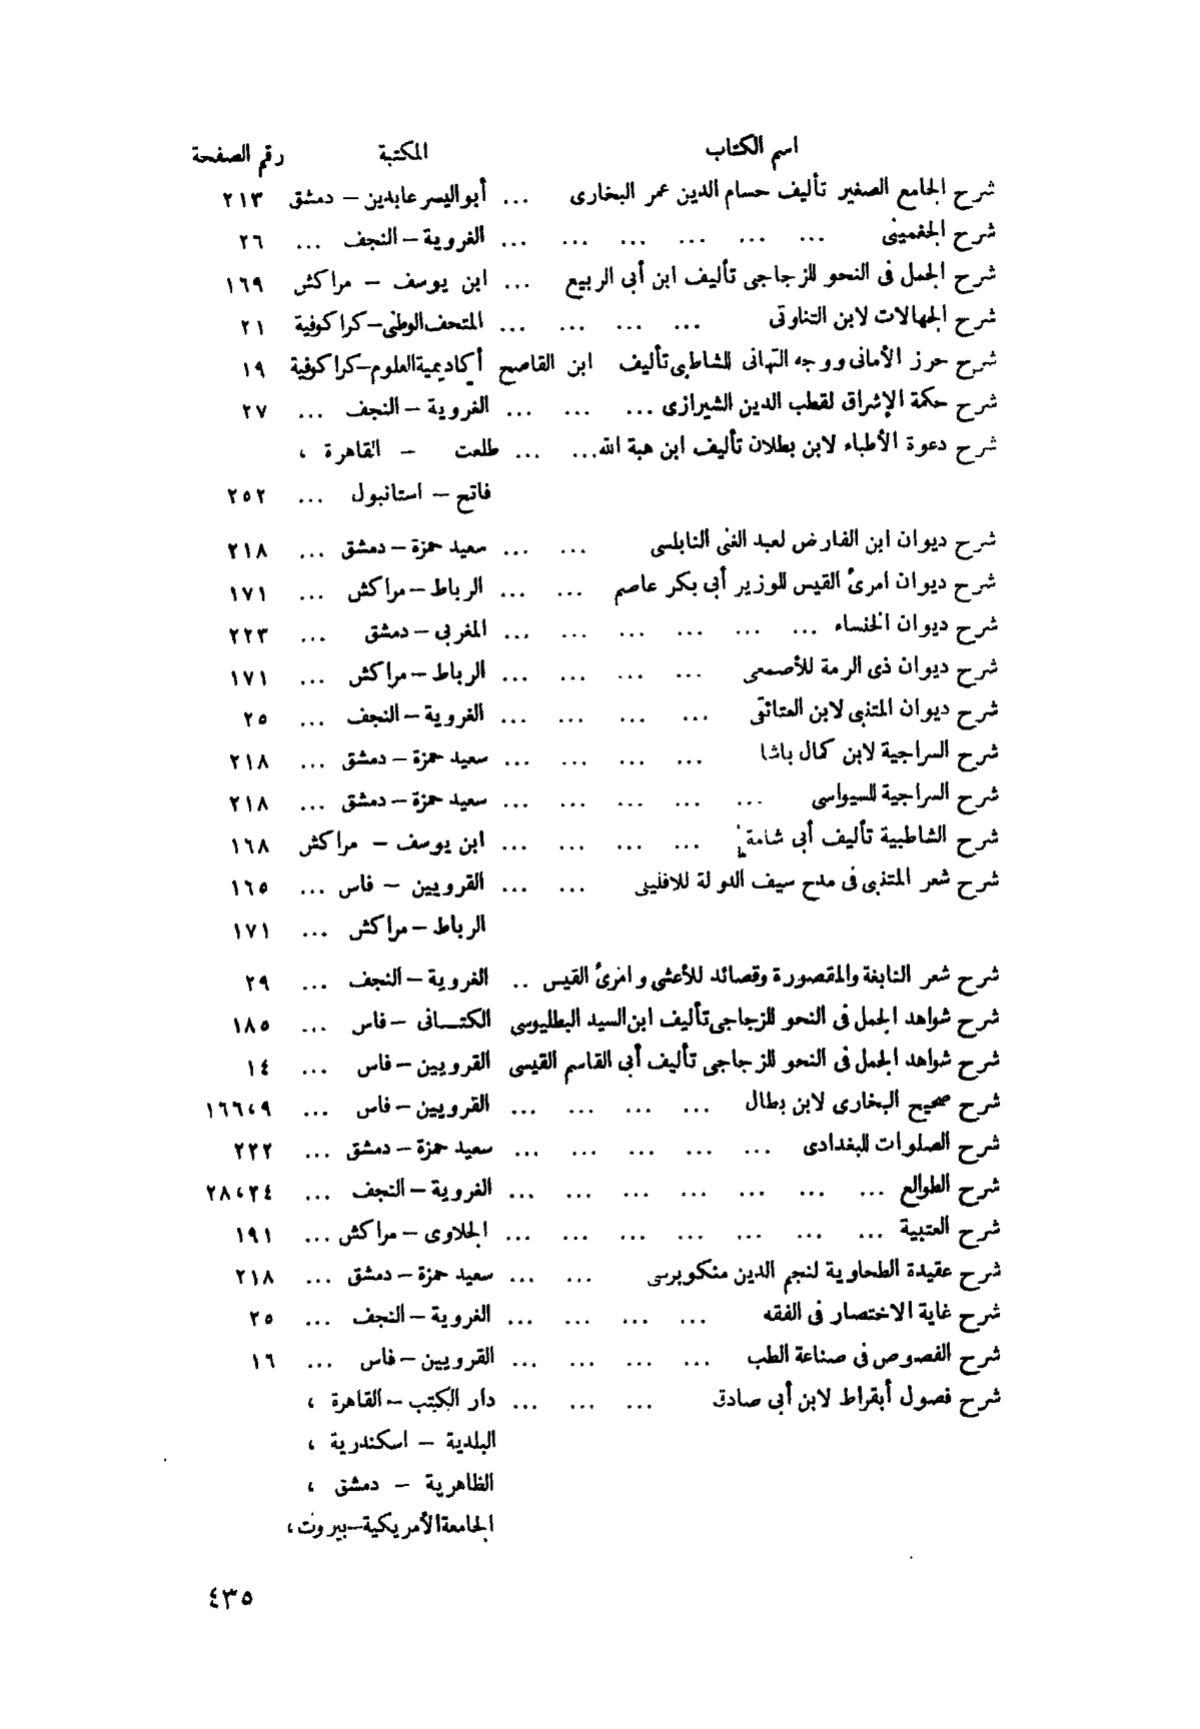 اسم الكتاب المكتبة رقم الصفحة
شرح الجامع الصغير تأليف حسام الدين عمر البخارى ... أبو اليسر عابدين – دمشق ٢١٣
شرح الجغمينى ... ... ... ... ... ... الغروية – النجف ... ٢٦
شرح الجمل فى النحو للزجاجى تأليف ابن أبى الربيع ... ابن يوسف – مراكش ١٦٩
شرح الجهالات لابن التناوتى ... ... ... ... المتحف الوطنى – كراكوفية ٢١
شرح حرز الأمانى ووجه التهانى للشاطبى تأليف ابن القاصح أكاديمية العلوم – كراكوفية ١٩
شرح حكمة الإشراق لقطب الدين الشيرازى ... ... ... الغروية – النجف ... ٢٧
شرح دعوة الأطباء لابن بطلان تأليف ابن هبة الله ... ... طلعت – القاهرة ،
فاتح – استانبول ... ٢٥٢
شرح ديوان ابن الفارض لعبد الغنى النابلسى ... ... سعيد حمزة – دمشق ... ٢١٨
شرح ديوان امرئ القيس للوزير أبى بكر عاصم ... ... الرباط – مراكش ... ١٧١
شرح ديوان الخنساء ... ... ... ... ... ... المغربى – دمشق ... ٢٢٣
شرح ديوان ذى الرمة للأصمعى ... ... ... ... الرباط – مراكش ... ١٧١
شرح ديوان المتنبى لابن العتائقى ... ... ... ... الغروية – النجف ... ٢٥
شرح السراجية لابن كمال باشا ... ... ... ... سعيد حمزة – دمشق ... ٢١٨
شرح السراجية للسيواسى ... ... ... ... ... سعيد حمزة – دمشق ... ٢١٨
شرح الشاطبية تأليف أبى شامة ... ... ... ... ابن يوسف – مراكش ١٦٨
شرح شعر المتنبى فى مدح سيف الدولة للافليلى ... ... القرويين – فاس ... ١٦٥
الرباط – مراكش ... ١٧١
شرح شعر النابغة والمقصورة وقصائد للأعشى و امرئ القيس .. الغروية – النجف ... ٢٩
شرح شواهد الجمل فى النحو للزجاجى تأليف ابن السيد البطليوسى الكتانى – فاس ... ١٨٥
شرح شواهد الجمل فى النحو للزجاجى تأليف أبى القاسم القيسى القرويين – فاس ... ١٤
شرح صحيح البخارى لابن بطال ... ... ... ... القرويين – فاس ... ١٦٦،٩
شرح الصلوات للبغدادى ... ... ... ... ... سعيد حمزة – دمشق ... ٢٢٢
شرح الطوالع ... ... ... ... ... ... ... الغروية – النجف ... ٢٨،٢٤
شرح العتبية ... ... ... ... ... ... ... الجلاوى – مراكش ... ١٩١
شرح عقيدة الطحاوية لنجم الدين منكوبرسى ... ... سعيد حمزة – دمشق ... ٢١٨
شرح غاية الاختصار فى الفقه ... ... ... ... الغروية – النجف ... ٢٥
شرح الفصوص فى صناعة الطب ... ... ... ... القرويين – فاس ... ١٦
شرح فصول أبقراط لابن أبى صادق ... ... ... دار الكتب – القاهرة ،
البلدية – اسكندرية ،
الظاهرية – دمشق ،
الجامعة الأمريكية – بيروت ،
٤٣٥